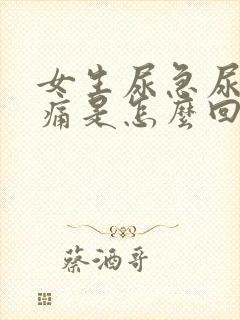 女生尿急尿
痛是怎麼回
蔡酒哥